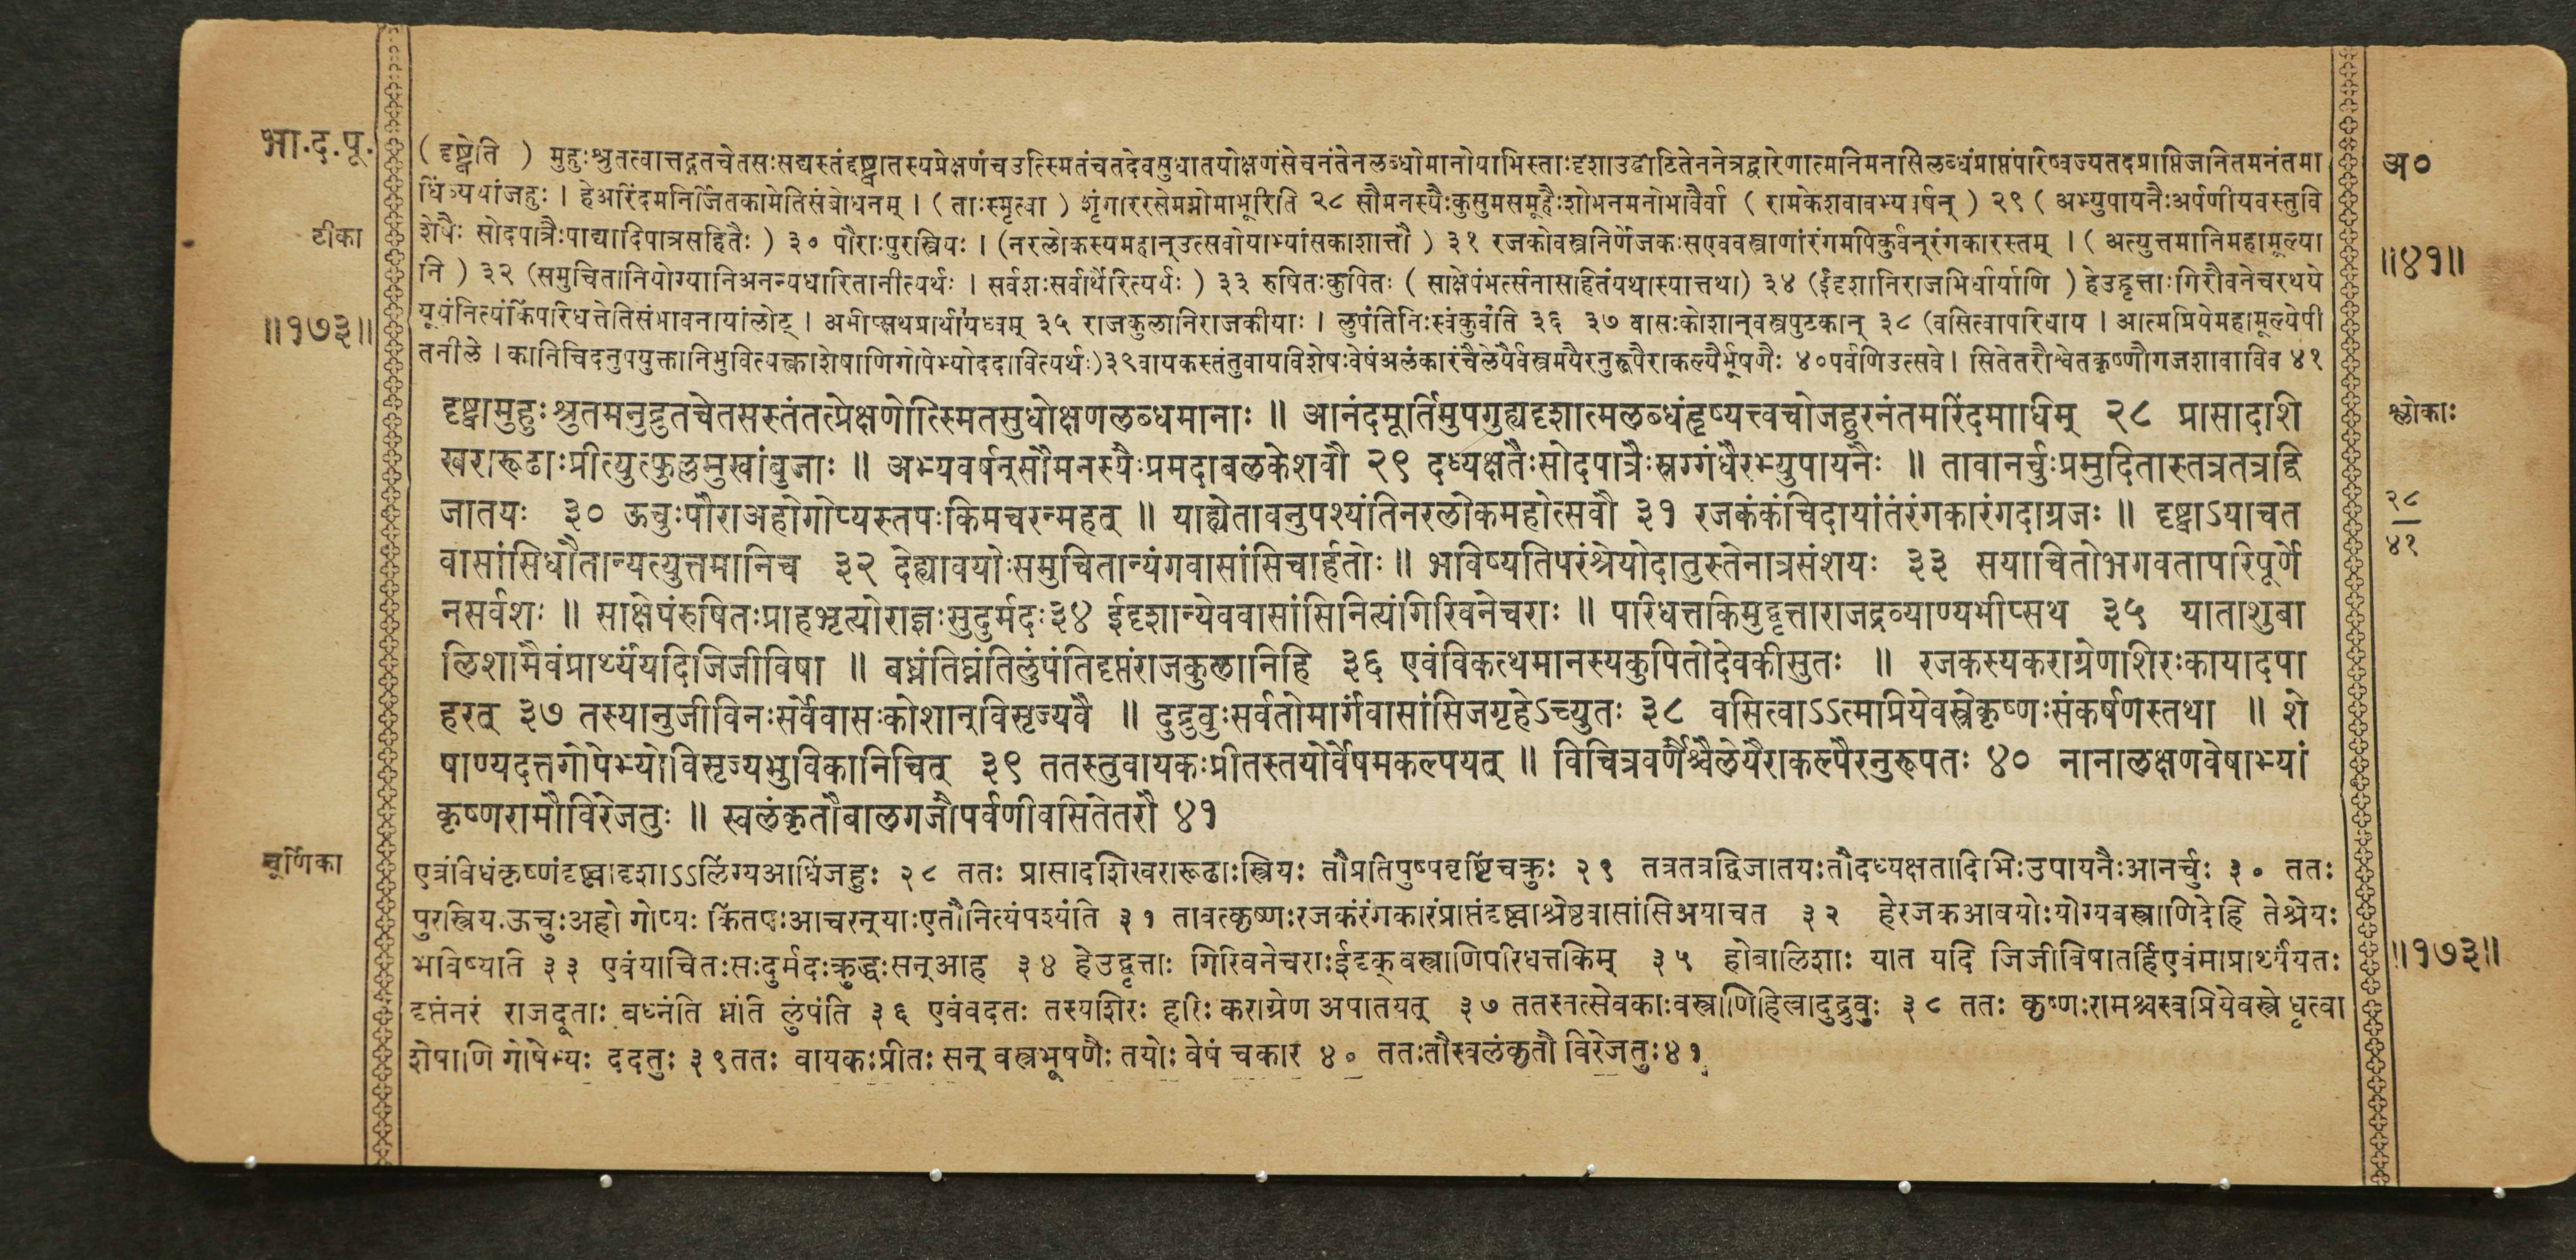 भा.द.पू.
टीका
॥१७३॥
(दृष्ट्वेति) मुहुःश्रुतत्वात्तद्गतचेतसःसद्यस्तंदृष्ट्वातस्यप्रेक्षणंचउत्स्मितंचतदेवसुधातयोक्षणंसेचनंतेनलब्धोमानोयाभिस्ताःदृशाउद्घाटितेननेत्रद्वारेणात्मनिमनसिलब्धंप्राप्तंपरिष्वज्यतदप्राप्तिजनितमनंतमा
धिंव्यथांजहुः । हेअरिंदमनिर्जितकामेतिसंबोधनम् । (ताःस्मृत्वा) शृंगाररसेमग्नोमाभूरिति २८ सौमनस्यैःकुसुमसमूहैःशोभनमनोभावैर्वा (रामकेशवावभ्यवर्षन्) २९ (अभ्युपायनैःअर्पणीयवस्तुवि
शेषैः सोदपात्रैःपाद्यादिपात्रसहितैः) ३० पौराःपुरस्त्रियः । (नरलोकस्यमहानुत्सवोयाभ्यांसकाशात्तौ) ३१ रजकोवस्त्रनिर्णेजकःसएववस्त्राणांरंगमपिकुर्वन्रंगकारस्तम् । (अत्युत्तमानिमहामूल्या
नि) ३२ (समुचितानियोग्यानिअनन्यधारितानीत्यर्थः । सर्वशःसर्वार्थैरित्यर्थः) ३३ रुषितःकुपितः (साक्षेपंभर्त्सनासहितंयथास्यात्तथा) ३४ (ईदृशानिराजभिर्धार्याणि) हेउद्वृत्ताःगिरौवनेचरथये
यूयंनित्यंकिंपरिधत्तेतिसंभावनायांलोट् । अभीप्सथप्रार्थयध्वम् ३५ राजकुलानिराजकीयाः । लुंपंतिनिःस्वंकुर्वंति ३६ ३७ वासःकोशान्वस्त्रपुटकान् ३८ (वसित्वापरिधाय । आत्मप्रियेमहामूल्येपी
तनीले । कानिचिदनुपयुक्तानिभुवित्यक्त्वाशेषाणिगोपेभ्योददावित्यर्थः)३९वायकस्तंतुवायविशेषःवेषंअलंकारंचैलेयैर्वस्त्रमयैरनुरूपैराकल्पैर्भूषणैः ४०पर्वणिउत्सवे। सितेतरौश्वेतकृष्णौगजशावाविव ४१
दृष्ट्वामुहुःश्रुतमनुद्रुतचेतसस्तंतत्प्रेक्षणोत्स्मितसुधोक्षणलब्धमानाः ॥ आनंदमूर्तिमुपगुह्यदृशात्मलब्धंहृष्यत्त्वचोजहुरनंतमरिंदमाधिम् २८ प्रासादशि
खरारूढाःप्रीत्युत्फुल्लमुखांबुजाः ॥ अभ्यवर्षन्सौमनस्यैःप्रमदाबलकेशवौ २९ दध्यक्षतैःसोदपात्रैःस्रग्गंधैरभ्युपायनैः ॥ तावानर्चुःप्रमुदितास्तत्रतत्रद्वि
जातयः ३० ऊचुःपौराअहोगोप्यस्तपःकिमचरन्महत् ॥ याह्येतावनुपश्यंतिनरलोकमहोत्सवौ ३१ रजकंकंचिदायांतंरंगकारंगदाग्रजः ॥ दृष्ट्वाऽयाचत
वासांसिधौतान्यत्युत्तमानिच ३२ देह्यावयोःसमुचितान्यंगवासांसिचार्हतोः ॥ भविष्यतिपरंश्रेयोदातुस्तेनात्रसंशयः ३३ सयाचितोभगवतापरिपूर्णे
नसर्वशः ॥ साक्षेपंरुषितःप्राहभृत्योराज्ञःसुदुर्मदः३४ ईदृशान्येववासांसिनित्यंगिरिवनेचराः ॥ परिधत्तकिमुद्वृत्ताराजद्रव्याण्यभीप्सथ ३५ याताशुबा
लिशामैवंप्रार्थ्यंयदिजिजीविषा ॥ बध्नंतिघ्नंतिलुंपंतिदृप्तंराजकुलानिहि ३६ एवंविकत्थमानस्यकुपितोदेवकीसुतः ॥ रजकस्यकराग्रेणशिरःकायादपा
हरत् ३७ तस्यानुजीविनःसर्वेवासःकोशान्विसृज्यवै ॥ दुद्रुवुःसर्वतोमार्गंवासांसिजगृहेऽच्युतः ३८ वसित्वाऽऽत्मप्रियेवस्त्रेकृष्णःसंकर्षणस्तथा ॥ शे
षाण्यदत्तगोपेभ्योविसृज्यभुविकानिचित् ३९ ततस्तुवायकःप्रीतस्तयोर्वेषमकल्पयत् ॥ विचित्रवर्णैश्चैलेयैराकल्पैरनुरूपतः ४० नानालक्षणवेषाभ्यां
कृष्णरामौविरेजतुः ॥ स्वलंकृतौबालगजौपर्वणीवसितेतरौ ४१
चूर्णिका
एवंविधंकृष्णंदृष्ट्वादृशाऽऽलिंग्यआधिंजहुः २८ ततः प्रासादशिखरारूढाःस्त्रियः तौप्रतिपुष्पवृष्टिंचक्रुः २९ तत्रतत्रद्विजातयःतौदध्यक्षतादिभिःउपायनैःआनर्चुः ३० ततः
पुरस्त्रियःऊचुःअहो गोप्यः किंतपःआचरन्याःएतौनित्यंपश्यंति ३१ तावत्कृष्णःरजकंरंगकारंप्राप्तंदृष्ट्वाश्रेष्ठवासांसिअयाचत ३२ हेरजकआवयोःयोग्यवस्त्राणिदेहि तेश्रेयः
भविष्यति ३३ एवंयाचितःसःदुर्मदःक्रुद्धःसन्आह ३४ हेउद्वृत्ताः गिरिवनेचराःईदृक्वस्त्राणिपरिधत्तकिम् ३५ हेबालिशाः यात यदि जिजीविषातर्हिएवंमाप्रार्थ्ययतः
दृप्तंनरं राजदूताः बध्नंति घ्नंति लुंपंति ३६ एवंवदतः तस्यशिरः हरिः कराग्रेण अपातयत् ३७ ततस्तत्सेवकाःवस्त्राणिहित्वादुद्रुवुः ३८ ततः कृष्णःरामश्चस्वप्रियेवस्त्रे धृत्वा
शेषाणि गोपेभ्यः ददतुः ३९ततः वायकःप्रीतः सन् वस्त्रभूषणैः तयोः वेषं चकार ४० ततःतौस्वलंकृतौ विरेजतुः४१
अ०
॥४१॥
श्लोकाः
२८
४१
॥१७३॥